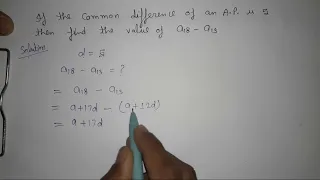 If the common difference of an A.P. is 5
then find the value of a18 - a13
Solution
d = 5
a18 - a13 = ?
= a18 - a13
= a+17d - (a+12d)
= a+17d